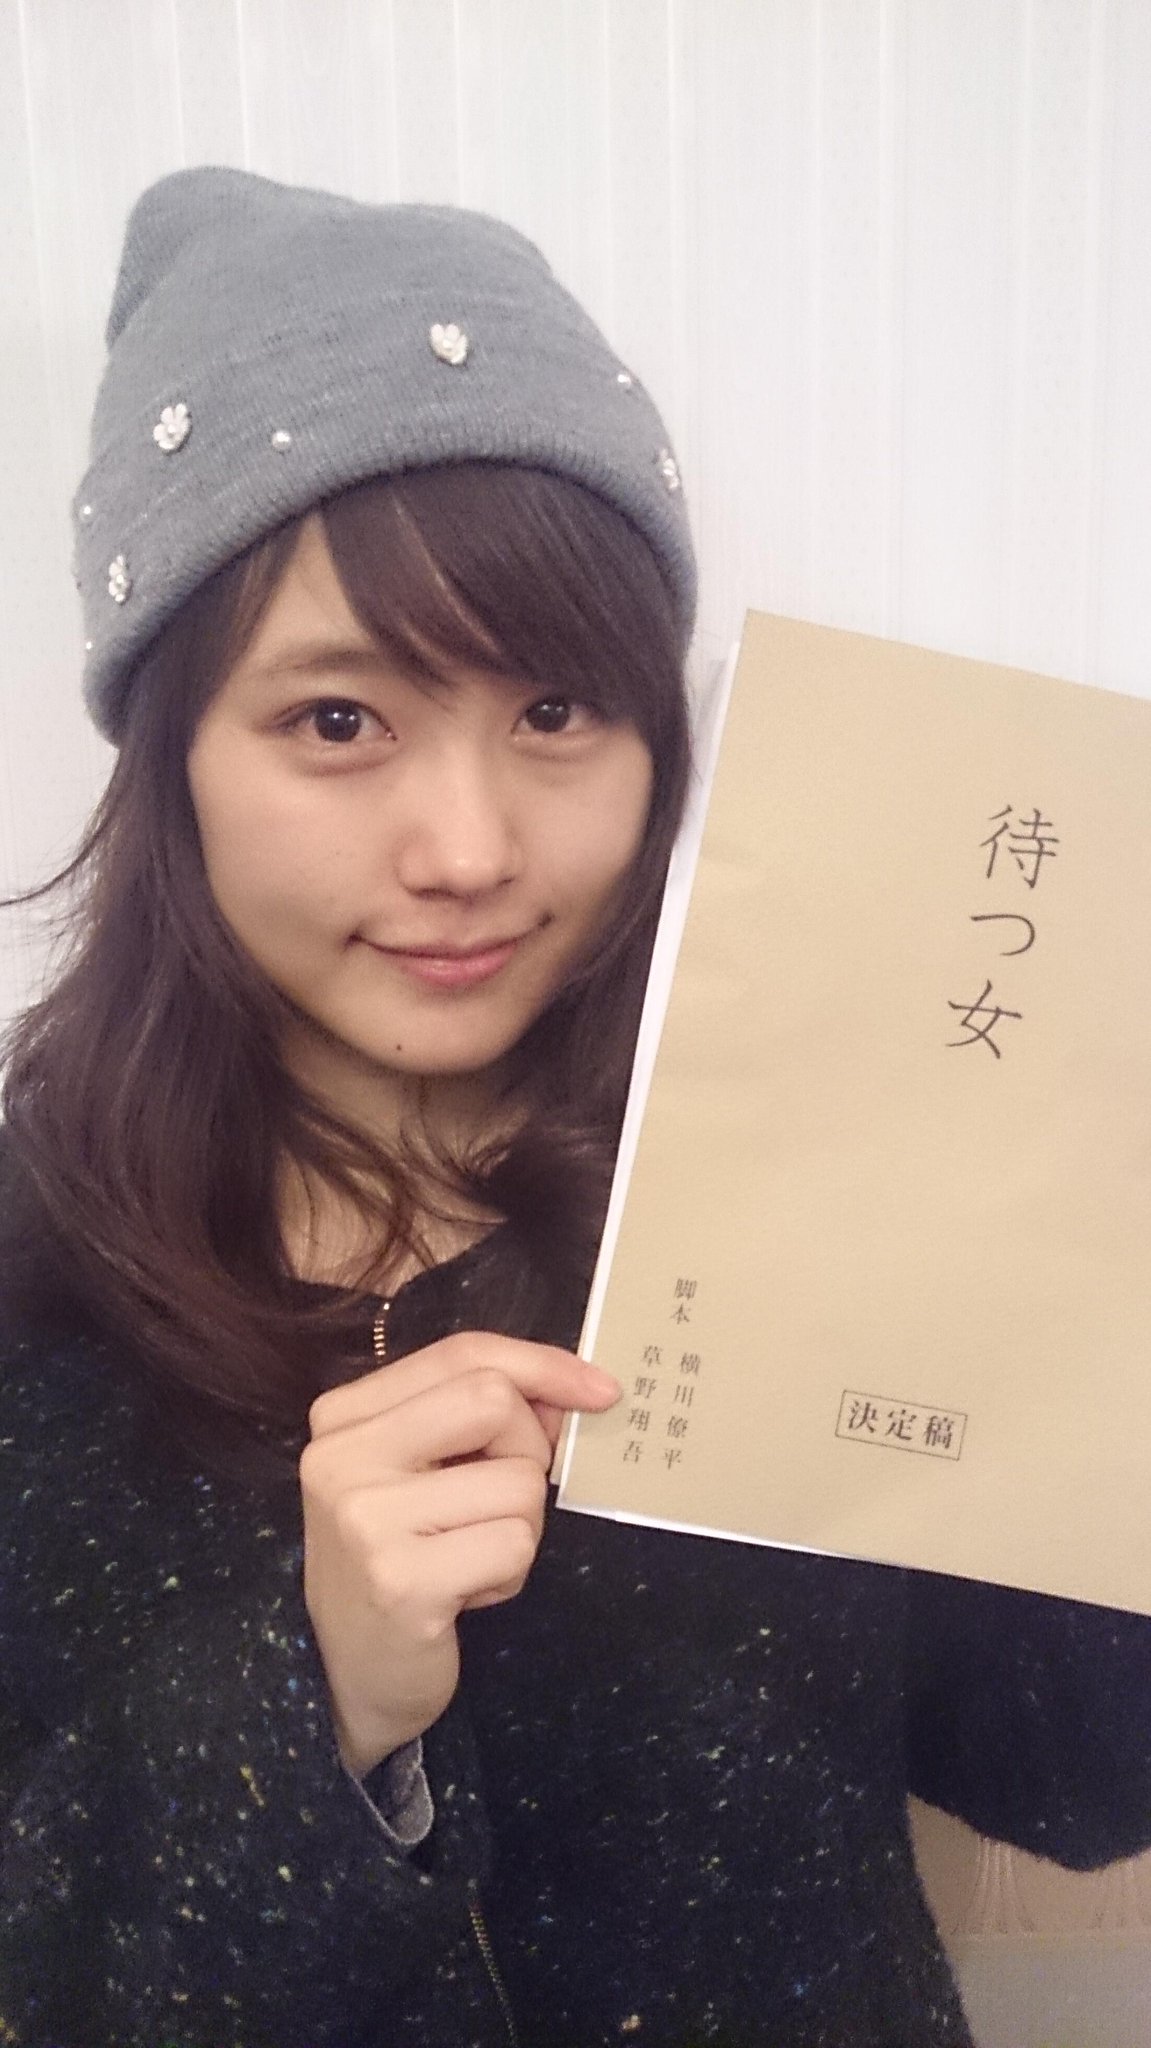 待つ女
決定稿
脚本 横川僚平
草野翔吾